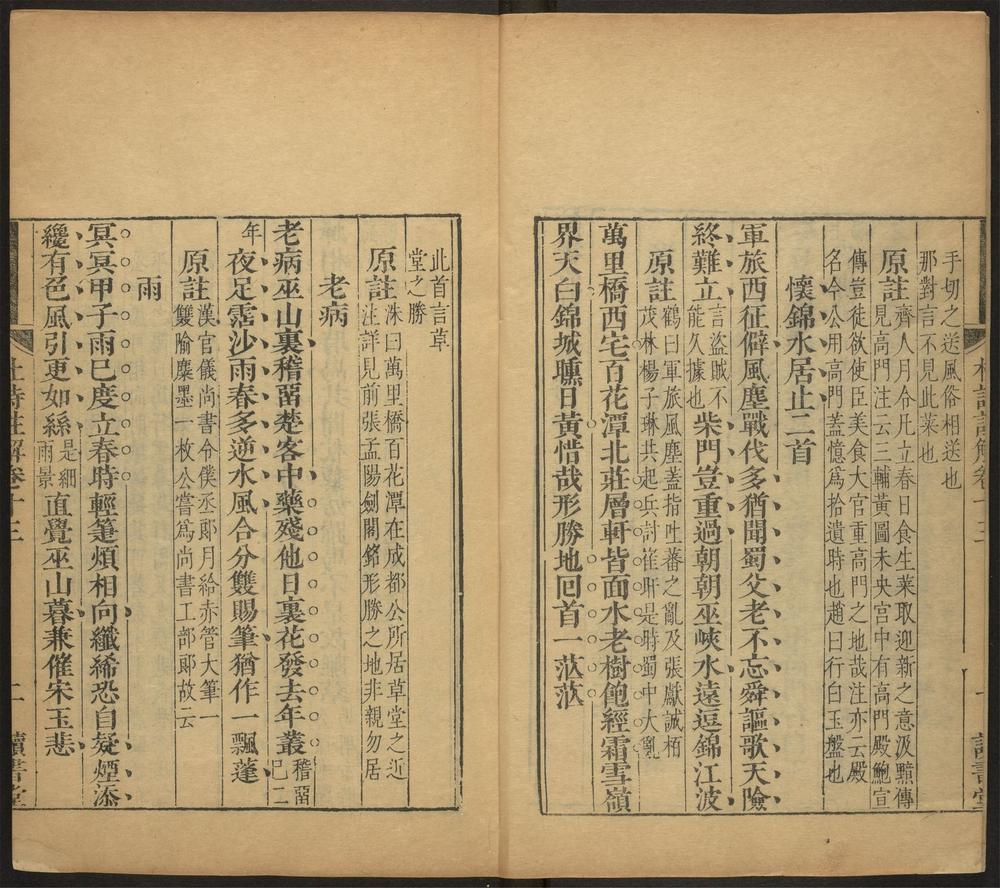 手切之送風俗相送也
那對言不見此菜也
原註齊人月令凡立春日食生菜取迎新之意汲黯傳
見高門注云三輔黃圖未央宮中有高門殿鮑宣
傳豈徒欲使臣美食大官重高門之地哉注亦云殿
名今公用高門蓋憶爲拾遺時也趙曰行白玉盤也
懷錦水居止二首
軍旅西征僻風塵戰代多猶聞蜀父老不忘舜謳歌天險
終難立言盜賊不能久據也柴門豈重過朝朝巫峽水遠逗錦江波
原註鶴曰軍旅風塵蓋指吐蕃之亂及張獻誠栢
茂林楊子琳共起兵討崔旰是時蜀中大亂
萬里橋西宅百花潭北莊層軒皆面水老樹飽經霜雪嶺
界天白錦城曛日黃惜哉形勝地回首一茫茫
此首言草
堂之勝
原註洙曰萬里橋百花潭在成都公所居草堂之近
注詳見前張孟陽劍閣銘形勝之地非親勿居
老病
老病巫山裏稽留楚客中藥殘他日裏花發去年叢稽留已二
年夜足霑沙雨春多逆水風合分雙賜筆猶作一飄蓬
原註漢官儀尚書令僕丞郎月給赤管大筆一
雙隃麋墨一枚公嘗爲尚書工部郎故云
雨
冥冥甲子雨已度立春時輕箑煩相向纖絺恐自疑煙添
纔有色風引更如絲是細雨景直覺巫山暮兼催宋玉悲
杜詩註解卷十三
二
讀書堂